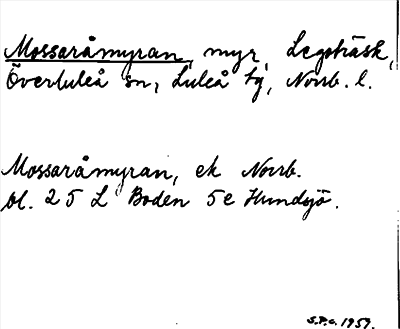 Mossaråmyran, myr, Legoträsk,
Överluleå sn, Luleå tg, Norrb. l.
Mossaråmyran, ek Norrb.
bl. 25 L Boden 5e Hundsjö.
S.P.c. 1959.